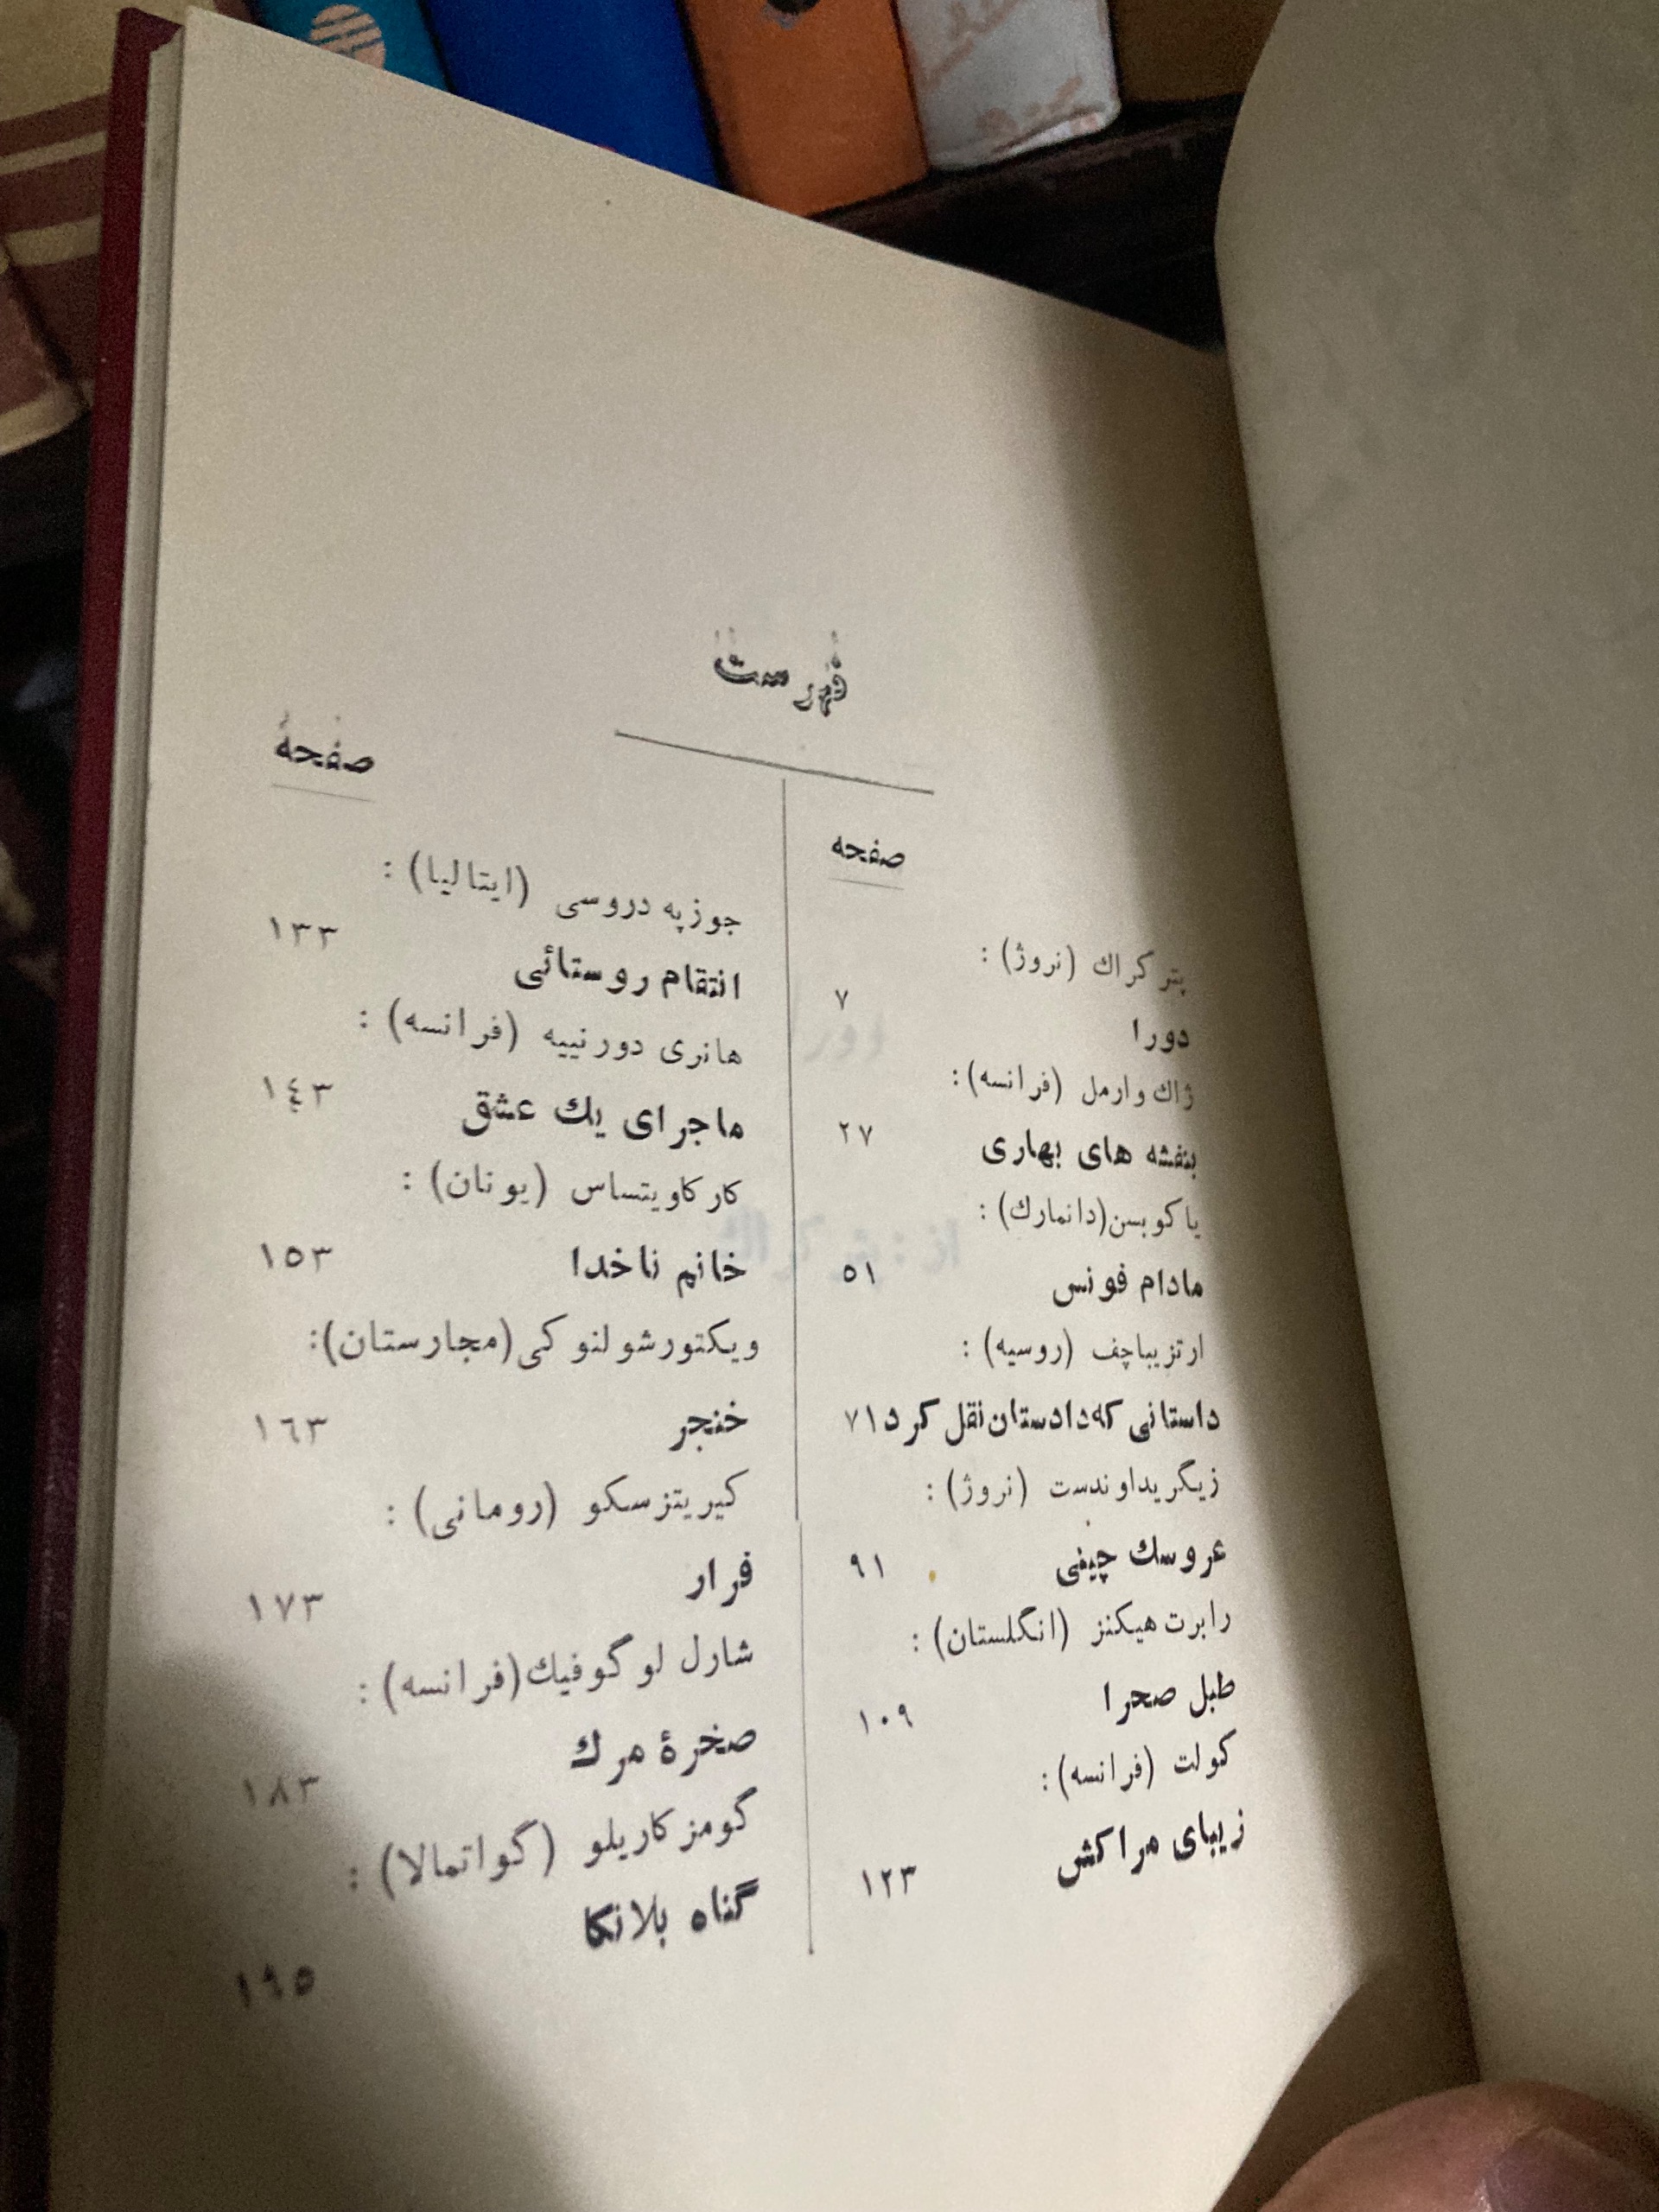 فهرست
صفحه
پتر كراك (نروژ):
دورا ٧
ژاك وارمل (فرانسه):
بنفشه های بهاری ٢٧
ياكوبسن(دانمارك):
مادام فونس ٥١
ارتزيباچف (روسيه):
داستانی كه دادستان نقل كرد ٧١
زيگريداوندست (نروژ):
عروسك چينی ٩١
رابرت هيكنز (انگلستان):
طبل صحرا ١٠٩
كولت (فرانسه):
زيبای مراكش ١٢٣
صفحهٔ
جوزپه دروسی (ايتاليا):
انتقام روستائی ١٣٣
هانری دورنييه (فرانسه):
ماجرای يك عشق ١٤٣
كاركاويتساس (يونان):
خانم ناخدا ١٥٣
ويكتورشولنوكی(مجارستان):
خنجر ١٦٣
كيريتزسكو (رومانی):
فرار ١٧٣
شارل لوگوفيك(فرانسه):
صخرۀ مرك ١٨٣
گومزكاريلو (گواتمالا):
گناه بلانكا ١٩٥